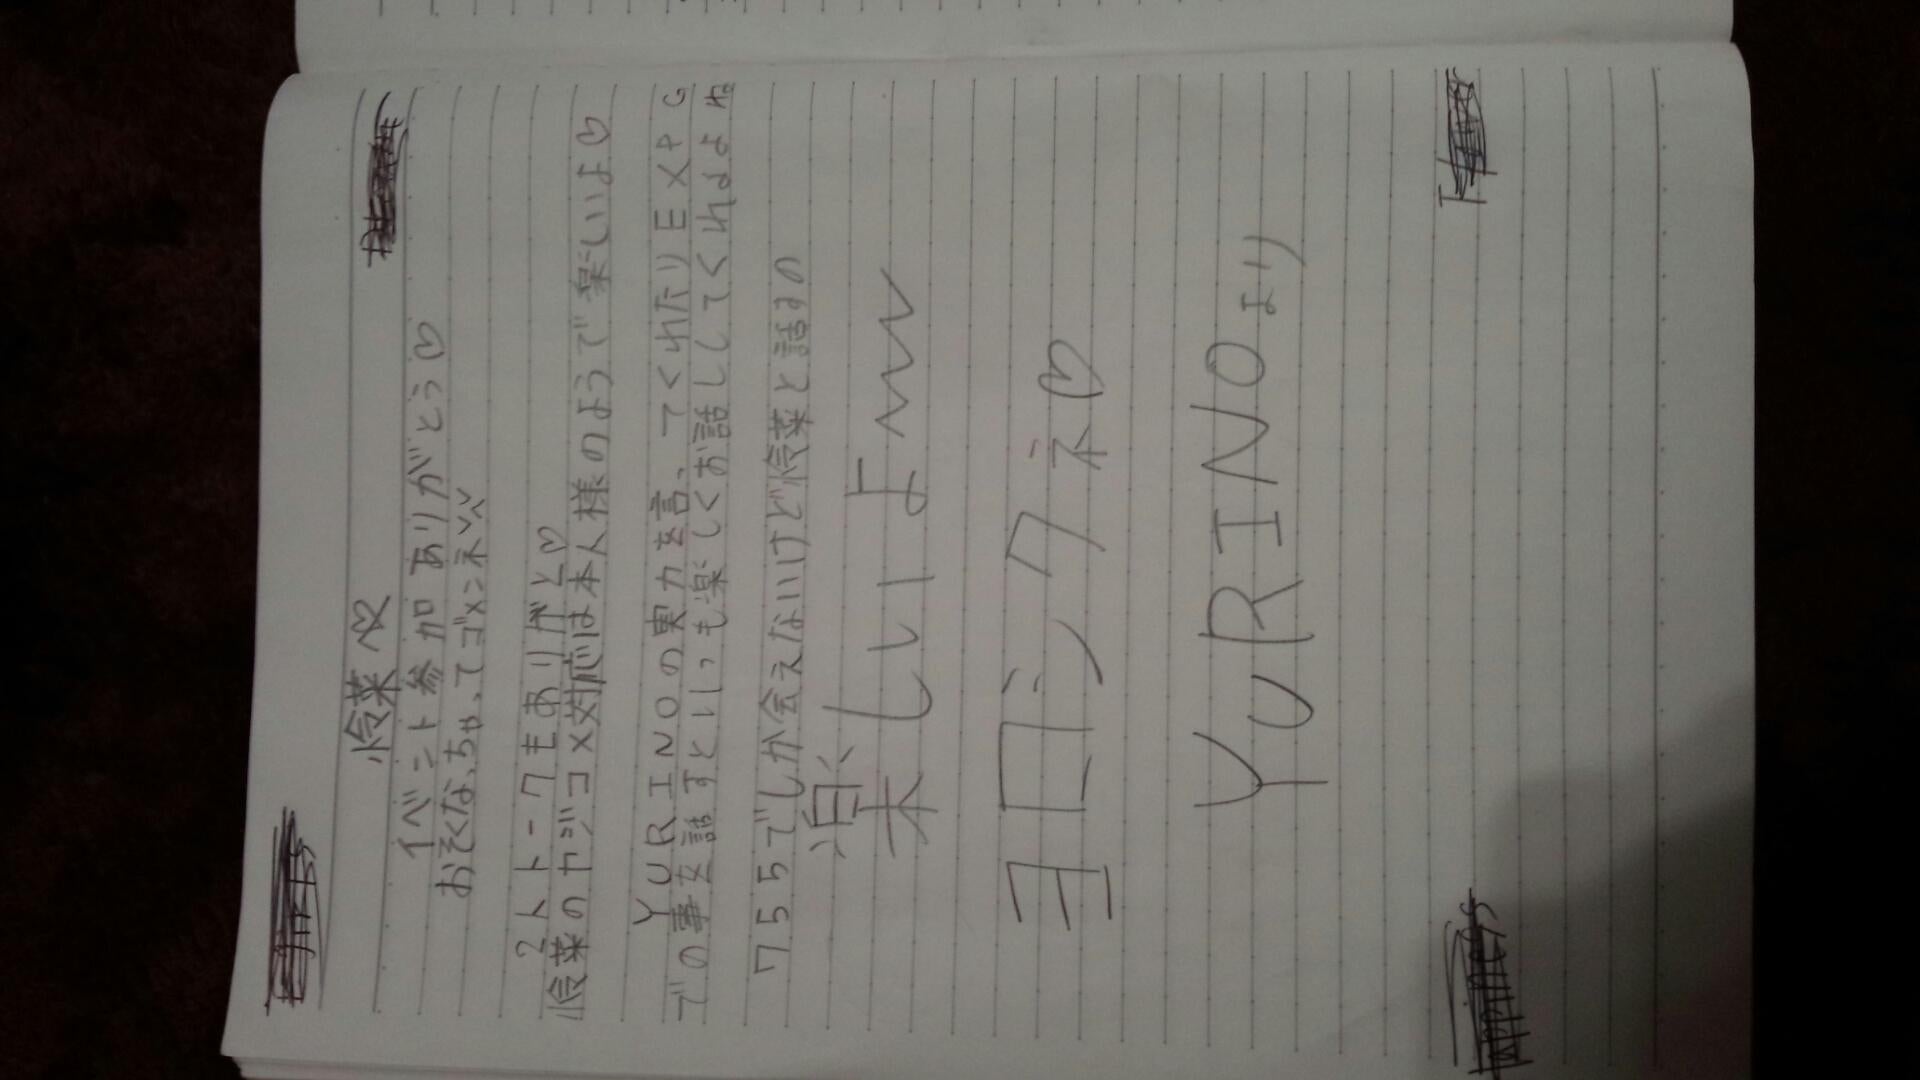 怜菜へ♡
イベント参加ありがとう♡
おそくなっちゃってゴメンネ
2人トークもありがと♡
怜菜のヤジコメ対応は本人様のようで楽しいよ♡
YURINOの実力を言ってくれたりEXPG
での事を話すといっも楽しくお話ししてくれるよね。
755でしか会えないけど怜菜と話すの
楽しいよ
ヨロシクネ♡
YURINOより